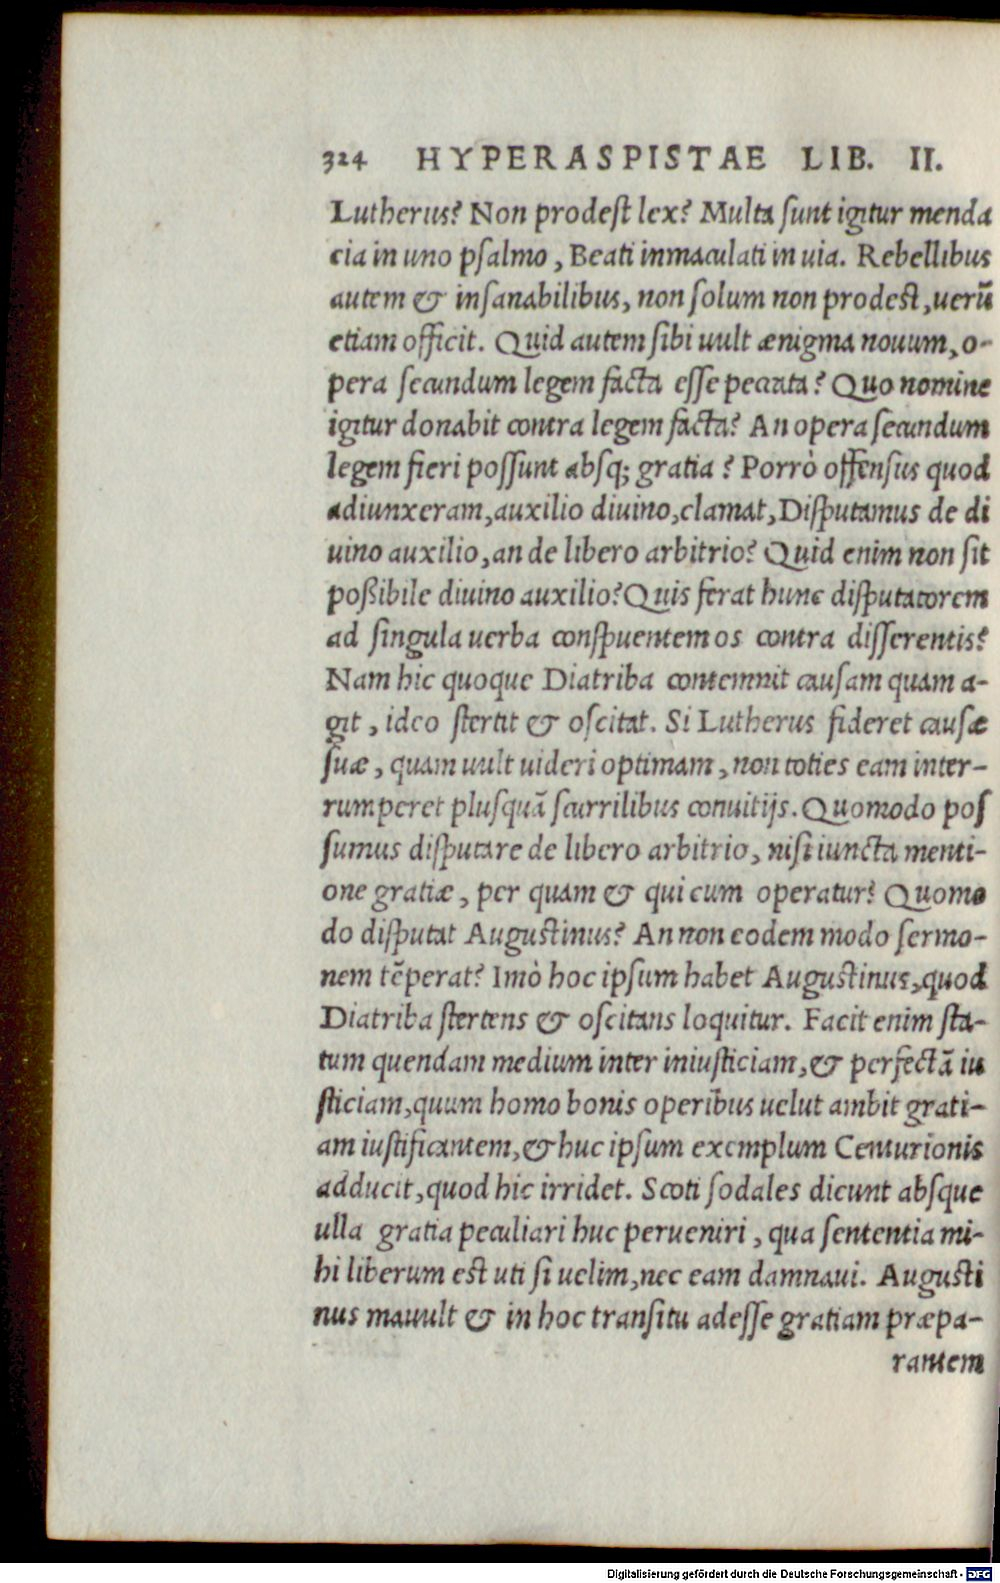 324 HYPERASPISTAE LIB. II.
Lutherus? Non prodeſt lex? Multa ſunt igitur menda
cia in uno pſalmo, Beati inmaculati in uia. Rebellibus
autem & inſanabilibus, non ſolum non prodeſt, uerū
etiam officit. Quid autem ſibi uult ænigma nouum, o-
pera ſecundum legem facta eſſe peccata? Quo nomine
igitur donabit contra legem facta? An opera ſecundum
legem fieri poſſunt abſq; gratia? Porrò offenſus quod
adiunxeram, auxilio diuino, clamat, Diſputamus de di
uino auxilio, an de libero arbitrio? Quid enim non ſit
poßibile diuino auxilio? Quis ferat hunc diſputatorem
ad ſingula uerba conſpuentem os contra diſſerentis?
Nam hic quoque Diatriba contemnit cauſam quam a-
git, ideo ſtertit & oſcitat. Si Lutherus fideret cauſæ
ſuæ, quam uult uideri optimam, non toties eam inter-
rumperet pluſquā ſcurrilibus conuitijs. Quomodo poſ
ſumus diſputare de libero arbitrio, niſi iuncta menti-
one gratiæ, per quam & qui cum operatur? Quomo
do diſputat Auguſtinus? An non eodem modo ſermo-
nem tēperat? Imò hoc ipſum habet Auguſtinus, quod
Diatriba ſtertens & oſcitans loquitur. Facit enim ſta-
tum quendam medium inter iniuſticiam, & perfectā iu
ſticiam, quum homo bonis operibus uelut ambit grati-
am iuſtificantem, & huc ipſum exemplum Centurionis
adducit, quod hic irridet. Scoti ſodales dicunt abſque
ulla gratia peculiari huc perueniri, qua ſententia mi-
hi liberum eſt uti ſi uelim, nec eam damnaui. Auguſti
nus mauult & in hoc tranſitu adeſſe gratiam præpa-
rantem
Digitalisierung gefördert durch die Deutsche Forschungsgemeinschaft - DFG